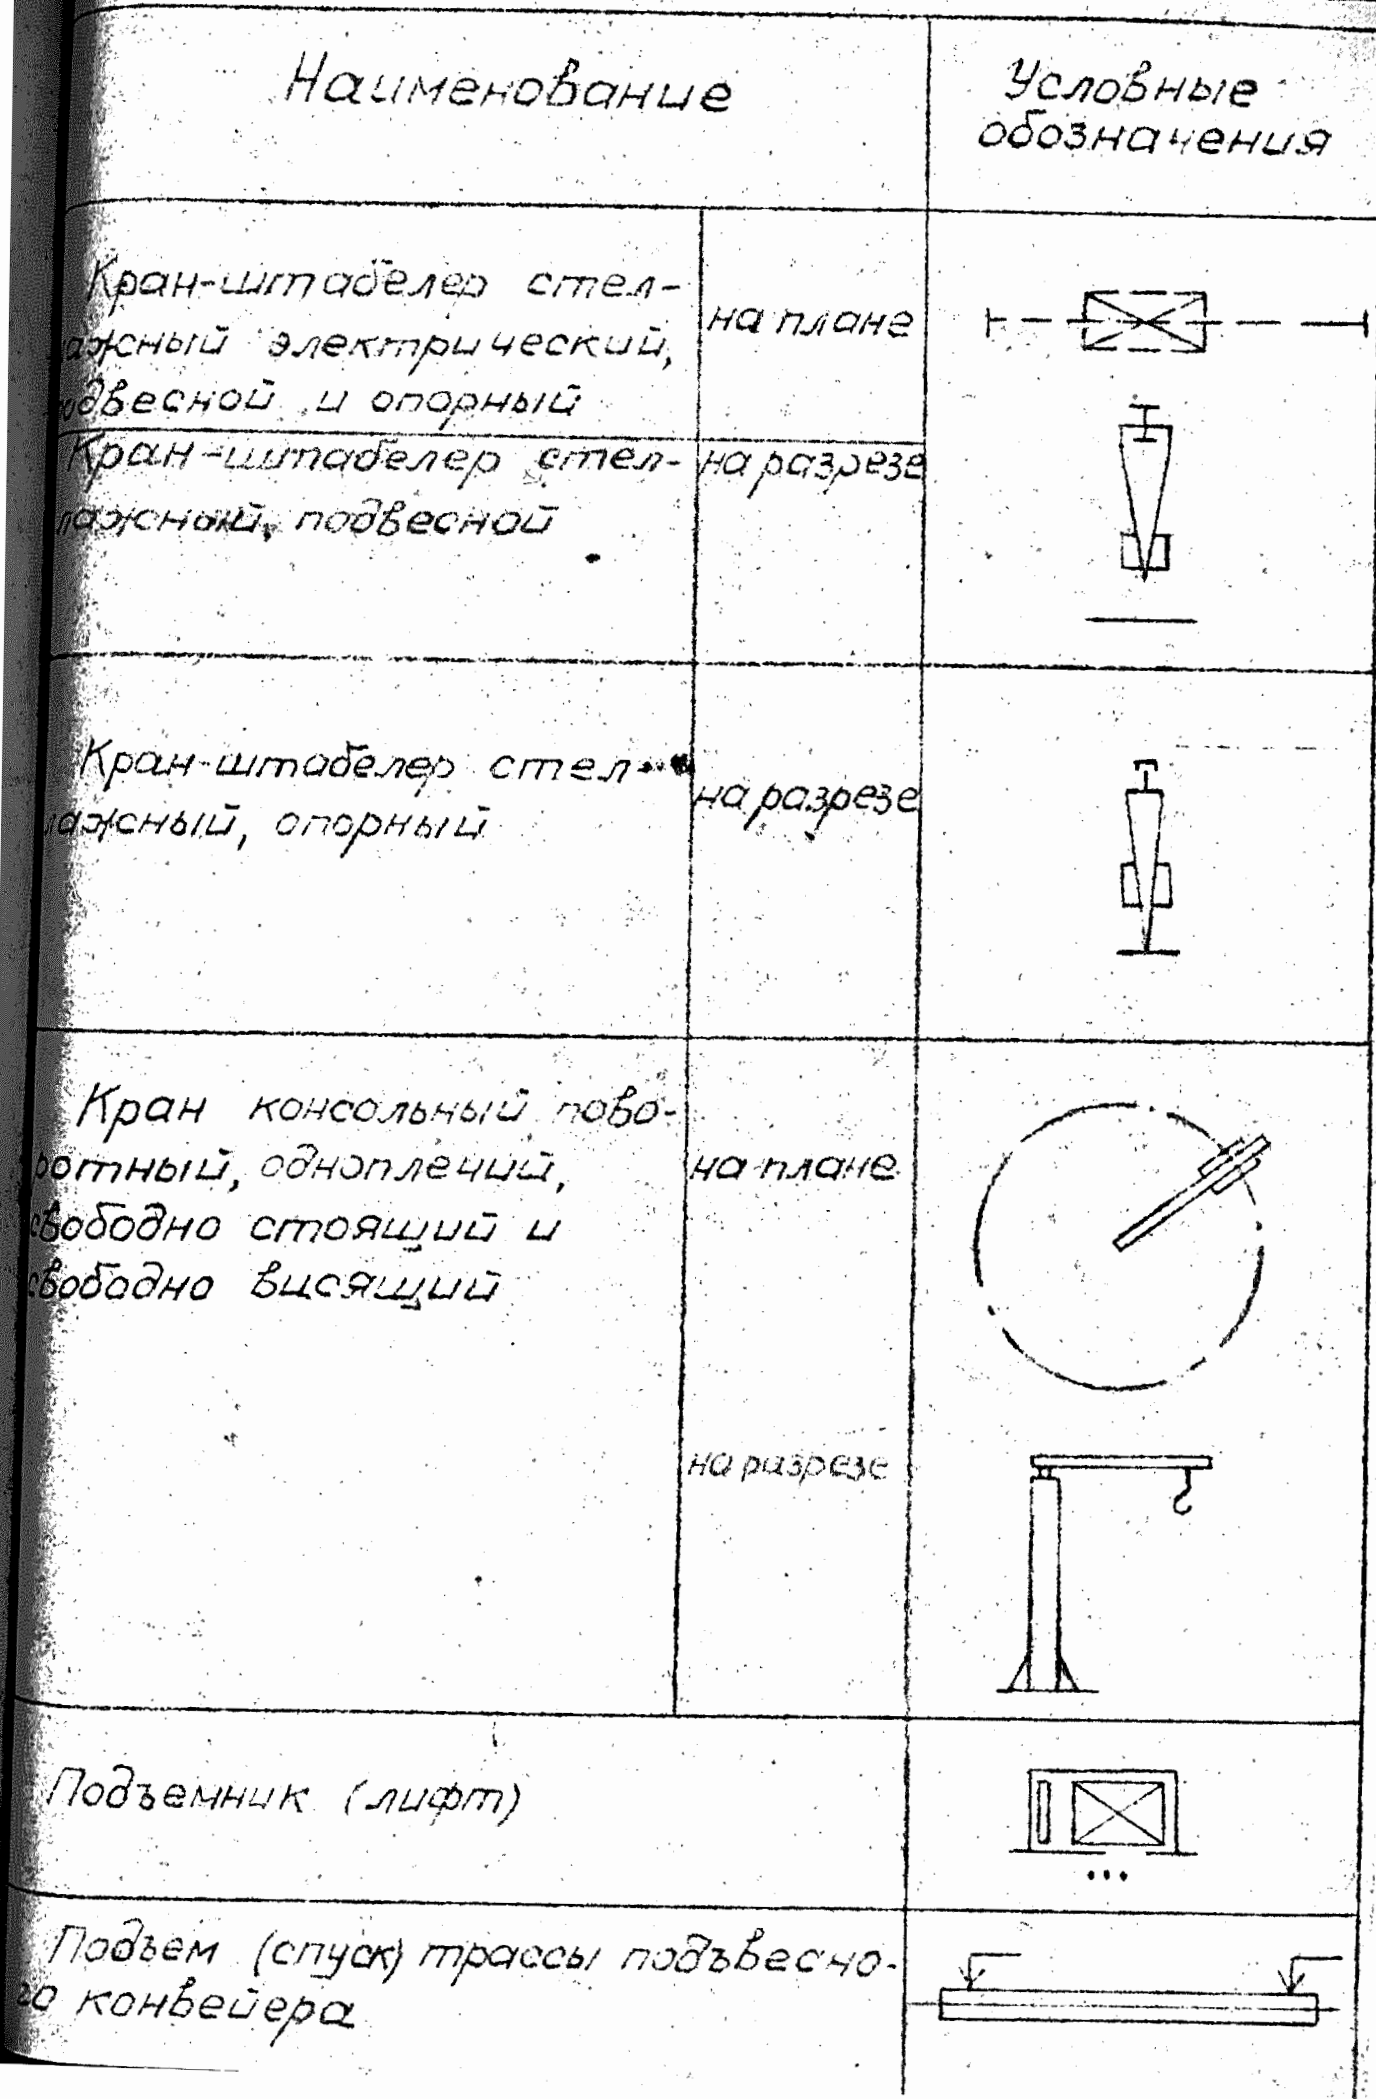 Наименование
Условные
обозначения
Кран-штабелер стел-
лажный электрический,
подвесной и опорный
на плане
Кран-штабелер стел-
лажный, подвесной
на разрезе
Кран-штабелер стел-
лажный, опорный
на разрезе
Кран консольный пово-
ротный, одноплечий,
свободно стоящий и
свободно висящий
на плане
на разрезе
Подъемник (лифт)
Подъем (спуск) трассы подъвесно-
го конвейера